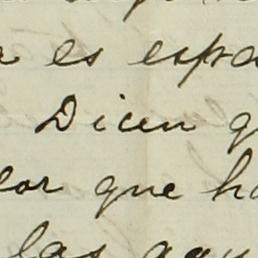 es espa
Dicen q
lor que ha
las aqu